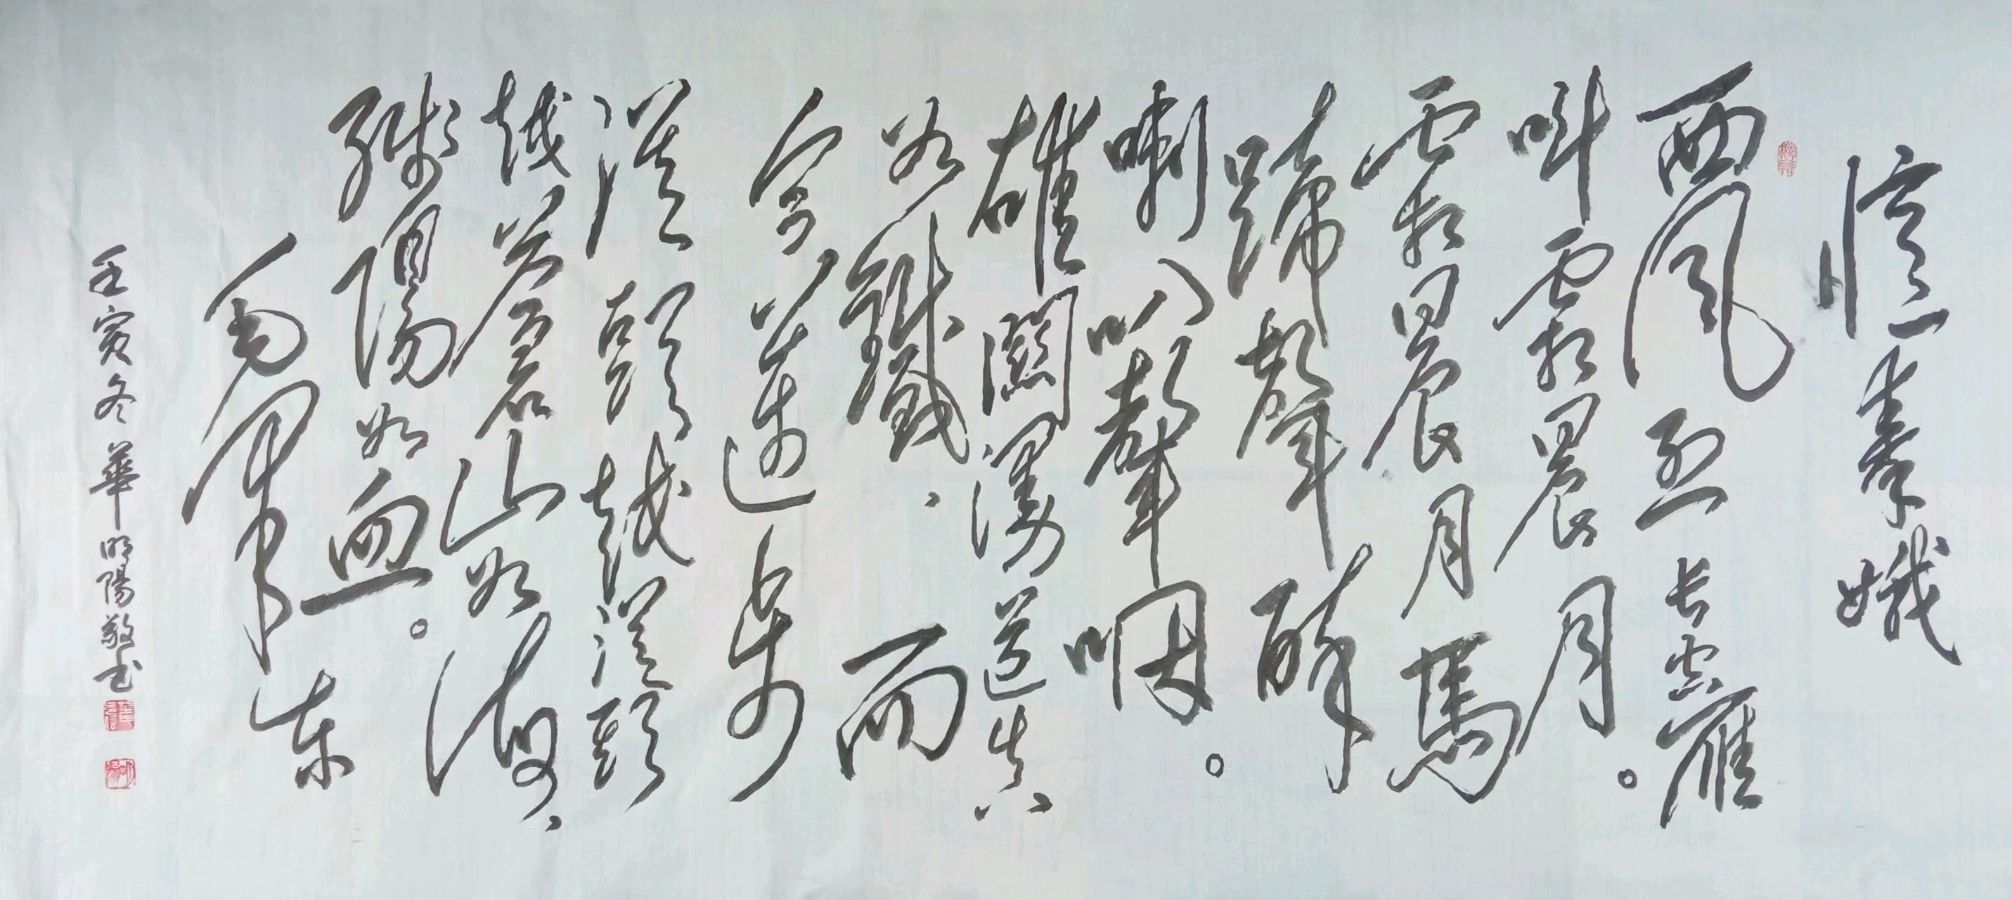 憶秦娥
西風烈長空雁
叫霜晨月。
霜晨月馬
蹄聲碎
喇叭聲咽。
雄關漫道真
如鐵、而
今邁步
從頭越從頭
越蒼山如海、
殘陽如血。
毛澤東
壬寅冬華明陽敬书